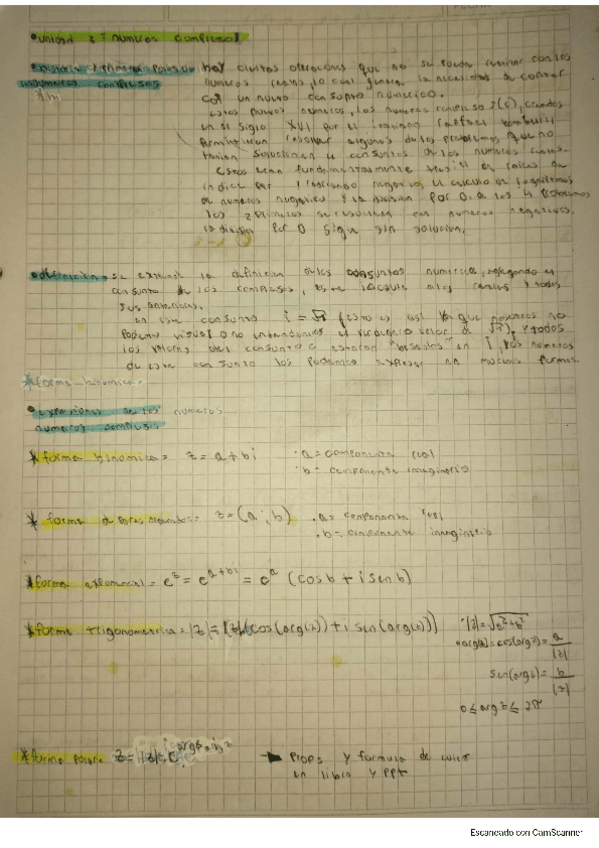 • unidad 2 = numeros complejos
hay ciertas operaciones que no se pueden realizar con los
numeros reales, lo cual genera la necesidad de contar
con un nuevo conjunto numerico.
estos nuevos numeros, los numeros complejos (C), creados
en el siglo XVI por el italiano Rafael
algunos de los problemas que no
tenian solucion en el conjunto de los numeros reales.
Estos eran fundamentalmente tres: el de raices de
indice par y radicando negativo, el calculo de logaritmos
de numeros negativos y la division por 0. de los
los 2 primeros se resuelven con numeros negativos,
la division por 0 sigue sin solucion.
• definicion = se extendio la definicion de los conjuntos numericos, agregando el
conjunto de los complejos, este incluye a los reales y todos
sus anteriores.
en este conjunto i = √-1 (esto es asi ya que nosotros no
podemos el verdadero valor de √-1), y todos
los valores del conjunto C estaran "basados" en i, los numeros
de este conjunto los podemos expresar en muchas formas.
*forma binomica =
• expresiones en los numeros
numeros complejos
* forma binomica = z = a + bi • a = componente real
• b = componente imaginario
* forma de pares ordenados = z = (a ; b) • a = componente real
• b = componente imaginario
* forma exponencial = e^z = e^(a+bi) = e^a (cos b + i sen b)
* forma trigonometrica = |z| = |z|(cos(arg(z)) + i sen(arg(z))) • |z| = √a²+b²
cos(arg z) = a/|z|
sen(arg z) = b/|z|
0 ≤ arg z ≤ 2π
* forma polar z = |z|
→ Props y formula de
en libro y PPT
Escaneado con CamScanner